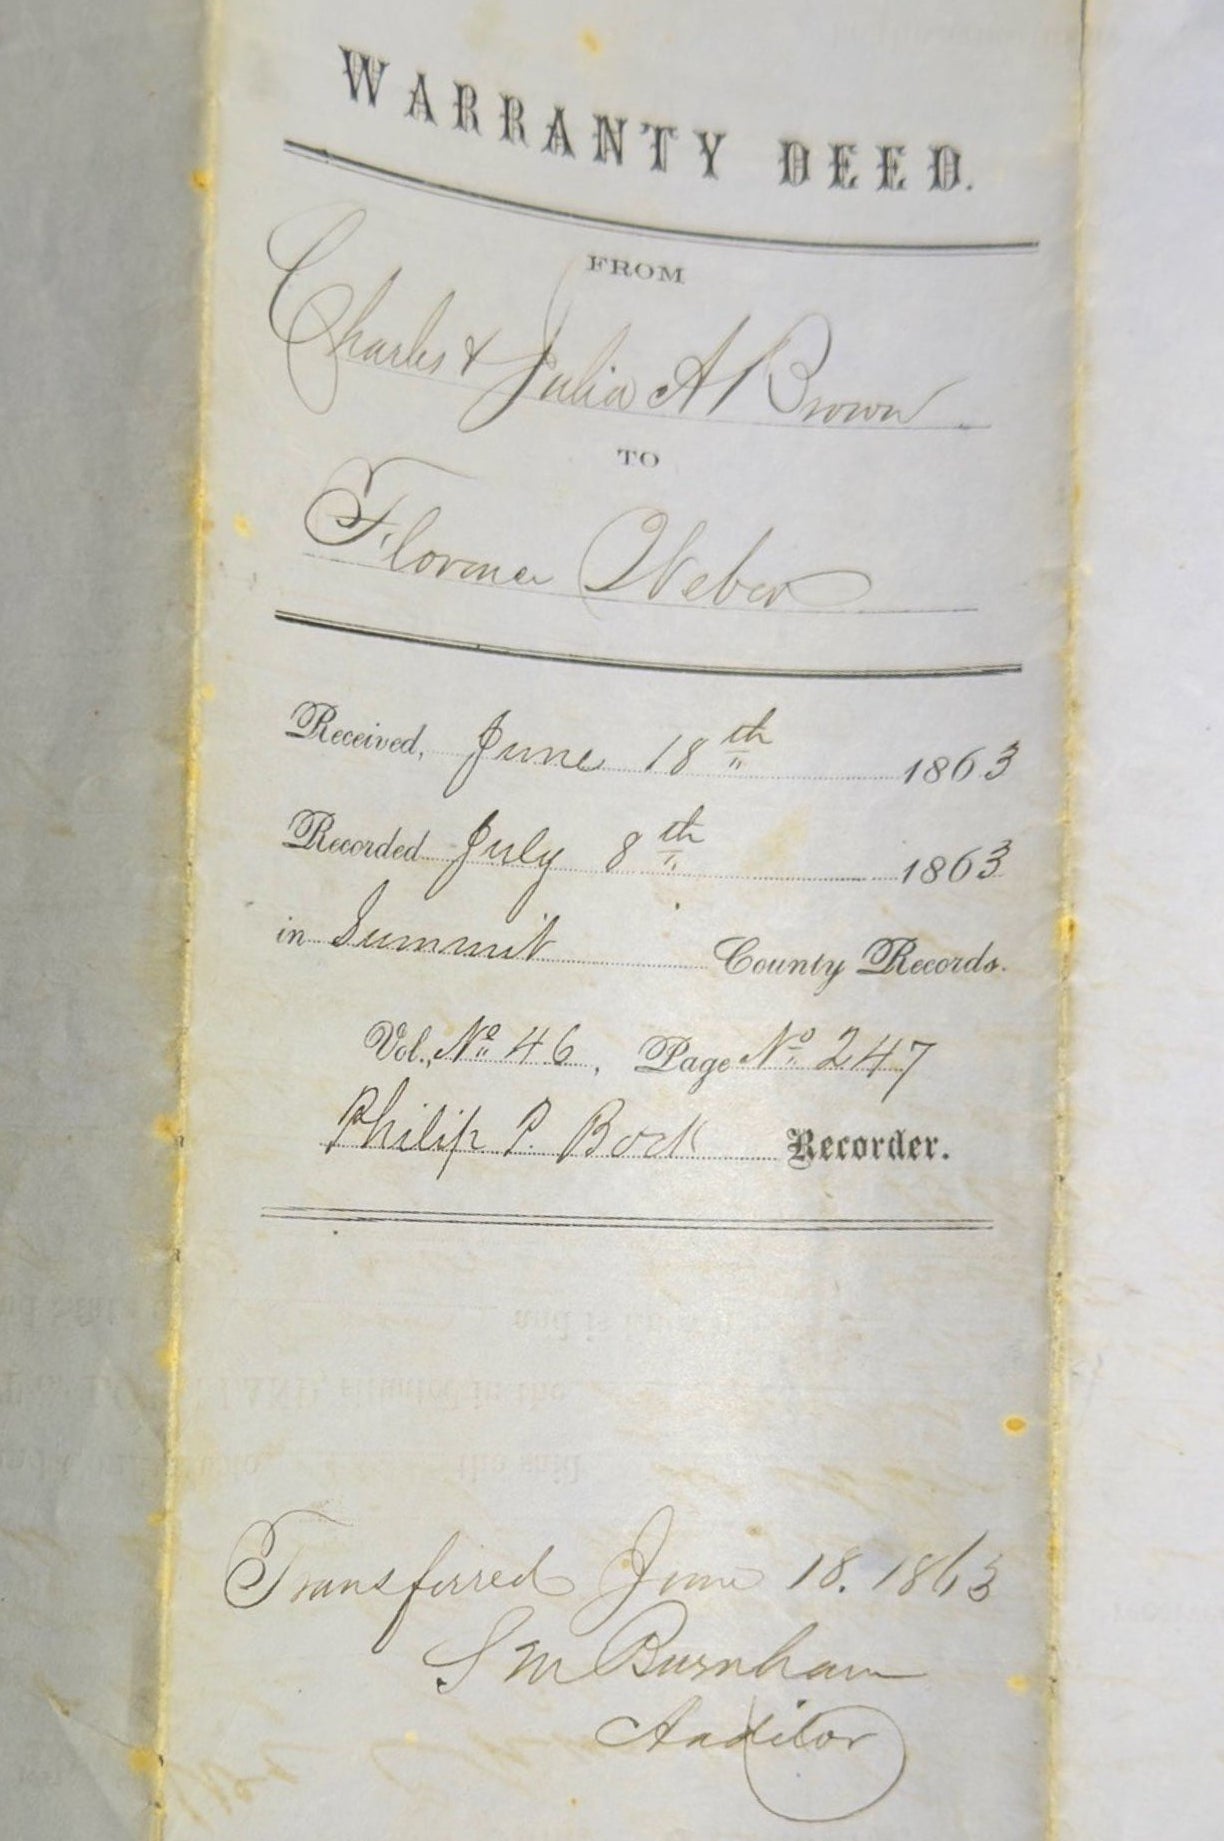 WARRANTY DEED.
FROM
Charles & Julia A Brown
TO
Florence Weber
Received, June 18th 1863
Recorded July 8th 1863
in Summit County Records.
Vol., No. 46, Page No. 247
Philip P. Bock Recorder.
and is
the said
Transferred June 18. 1863
S M Burnham
Auditor